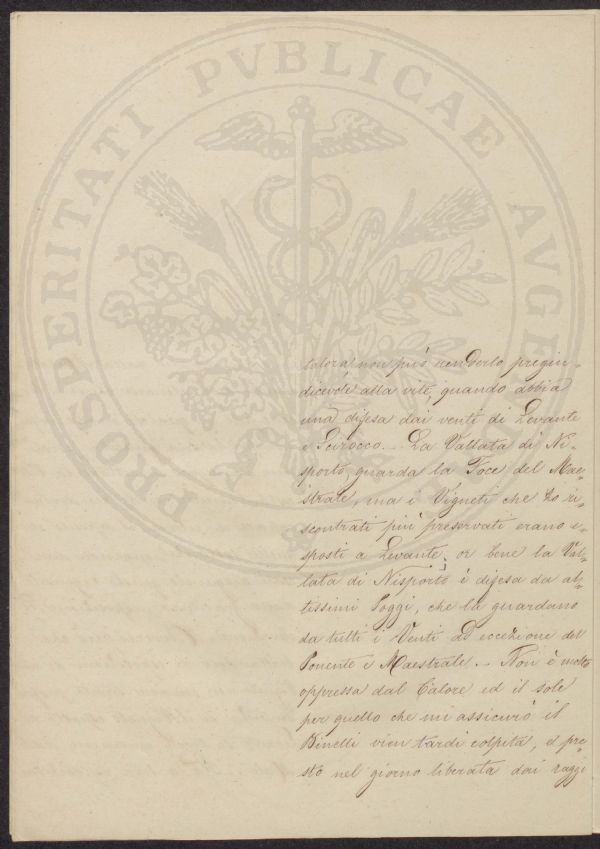 PROSPERITATI PVBLICAE AVGE
talora non può renderlo pregiu-
dicevole alla vite, quando abbia
una difesa dai venti di Levante
e Scirocco. _ La Vallata di Ni-
sporto, guarda la Foce del Mae-
strale, ma i Vigneti che ho ri-
scontrati più preservati erano e-
sposti a Levante, or bene la Val-
lata di Nisporto è difesa da al-
tissimi Poggi, che la guardano
da tutti i Venti ad eccezione del
Ponente e Maestrale. _ Non è molto
oppressa dal Calore ed il sole
per quello che mi assicurò il
Binelli vien tardi colpita, e pre-
sto nel giorno liberata dai raggi